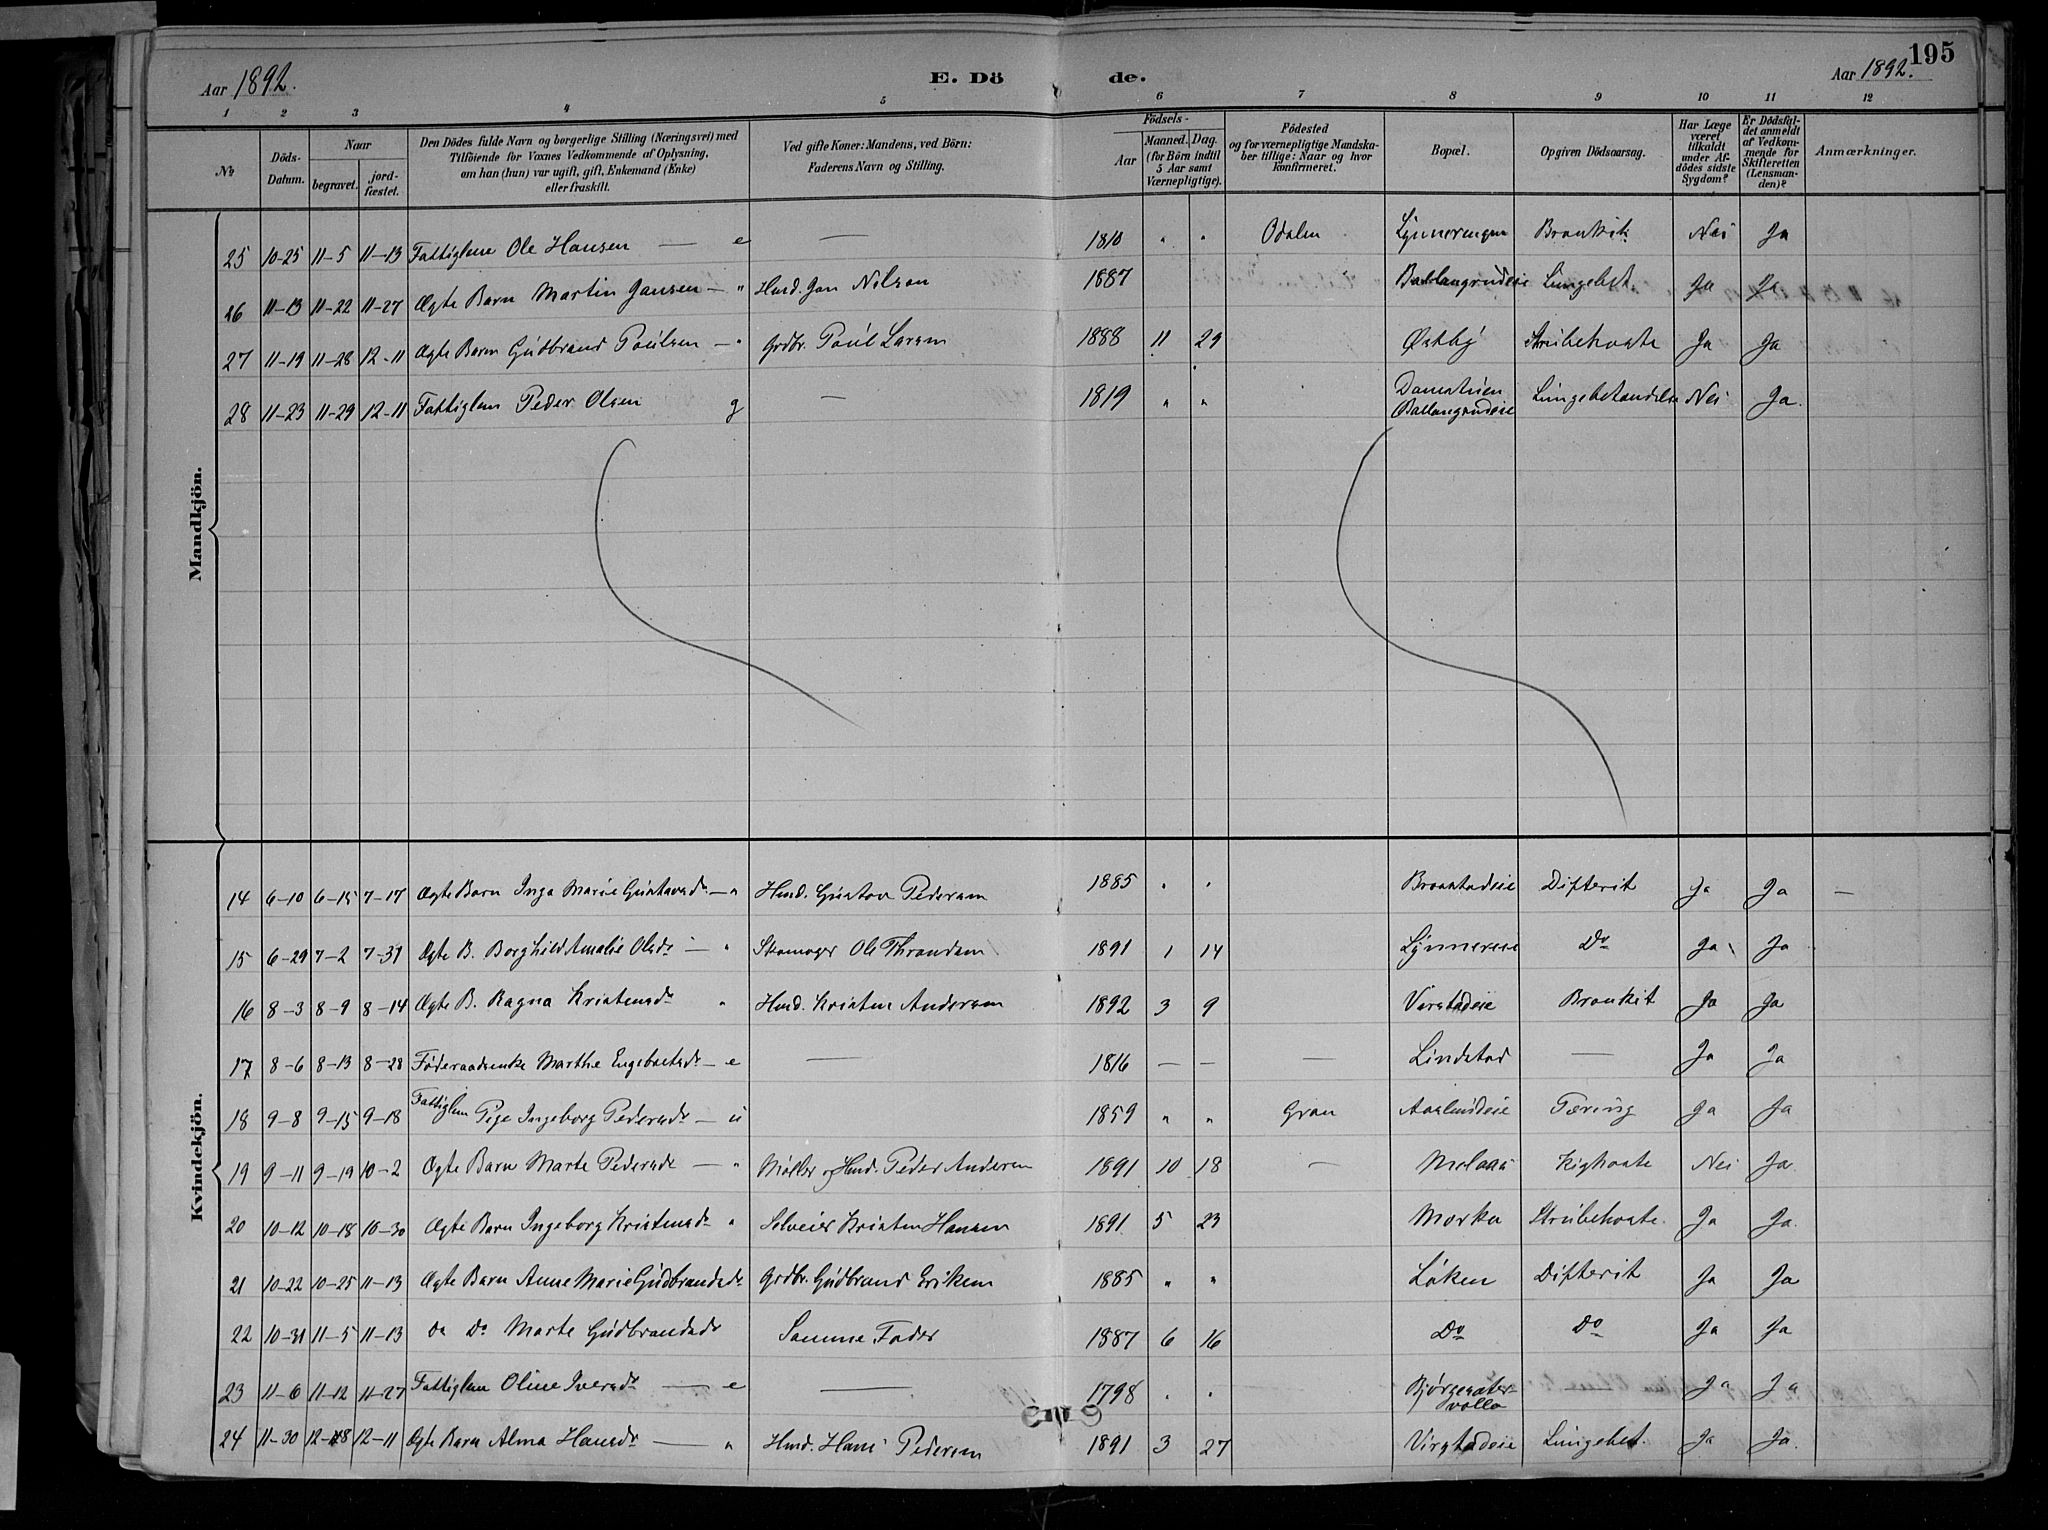 195
Aar 1892. E. Dö de. Aar 1892.
1 2 3 4 5 6 7 8 9 10 11 12
No
Döds-Datum.
Naar
begravet.
jordfæstet.
Den Dödes fulde Navn og borgerlige Stilling (Næringsvei) med
Tilföiende for Voxnes Vedkommende af Oplysning,
om han (hun) var ugift, gift, Enkemand (Enke)
eller fraskilt.
Ved gifte Koner: Mandens, ved Börn:
Faderens Navn og Stilling.
Födsels-
Aar
Maaned. Dag.
(for Börn indtil
5 Aar samt
Værnepligtige).
Födested
og for værnepligtige Mandskaber tillige: Naar og hvor
konfirmeret.
Bopæl.
Opgiven Dödsaarsag.
Har Læge
været
tilkaldt
under Afdödes sidste
Sygdom?
Er Dödsfaldet anmeldt
af Vedkommende for
Skifteretten
(Lensmanden)?
Anmærkninger.
Mandkjön.
25 10-25 11-5 11-13 Fattiglem Ole Hansen — e — 1810 " " Odalen Bronkit Nei Ja
26 11-13 11-22 11-27 Ægte Barn Martin Jansen — " Husd. Jan Nilsen 1887 Ballangrudeie Lungebet. Ja Ja
27 11-19 11-28 12-11 Ægte Barn Gudbrand Paulsen — " Grdbr. Paul Larsen 1888 11 29 Østby Strubehoste Ja Ja
28 11-23 11-29 12-11 Fattiglem Peder Olsen g — 1819 " " Ballangrudeie Lungebetændelse Nei Ja.
Kvindekjön.
14 6-10 6-15 7-17 Ægte Barn Inga Marie Gustavsdr — " Husd. Gustav Pedersen 1885 " " Difterit Ja Ja —
15 6-29 7-2 7-31 Ægte B. Borghild Amalie Olsdr — " Skomager Ole Throndsen 1891 1 14 Lynnereie Do Ja Ja
16 8-3 8-9 8-14 Ægte B. Ragna Kristensdr " Husd. Kristen Andersen 1892 3 9 Virstadeie Bronkit Ja Ja
17 8-6 8-13 8-28 Føderaadsenke Marthe Engebretsdr — e — 1816 — — — Lindstad — Ja Ja
18 9-8 9-15 9-18 Fattiglem Pige Ingeborg Pedersdr — u 1859 " " Gran Aaslundeie Tæring Ja Ja
19 9-11 9-19 10-2 Ægte Barn Marte Pedersdr — " Møller og Husd. Peder Andersen 1891 10 18 — Kighoste Nei Ja.
20 10-12 10-18 10-30 Ægte Barn Ingeborg Kristensdr " Selveier Kristen Hansen 1891 5 23 Morka Strubehoste. Ja Ja.
21 10-22 10-25 11-13 Ægte Barn Anne Marie Gudbrandsdr Grdbr. Gudbrand Eriksen 1885 " " Løken Difterit Ja Ja
22 10-31 11-5 11-13 Do Do Marte Gudbrandsdr Samme Fader 1887 6 16 Do Do Ja Ja
23 11-6 11-12 11-27 Fattiglem Oline Iversdr — e — 1798 " " Ja Ja
24 11-30 12-8 12-11 Ægte Barn Alma Hansdr — " Husd. Hans Pedersen 1891 3 27 Virstadeie Lungebet. Ja Ja.